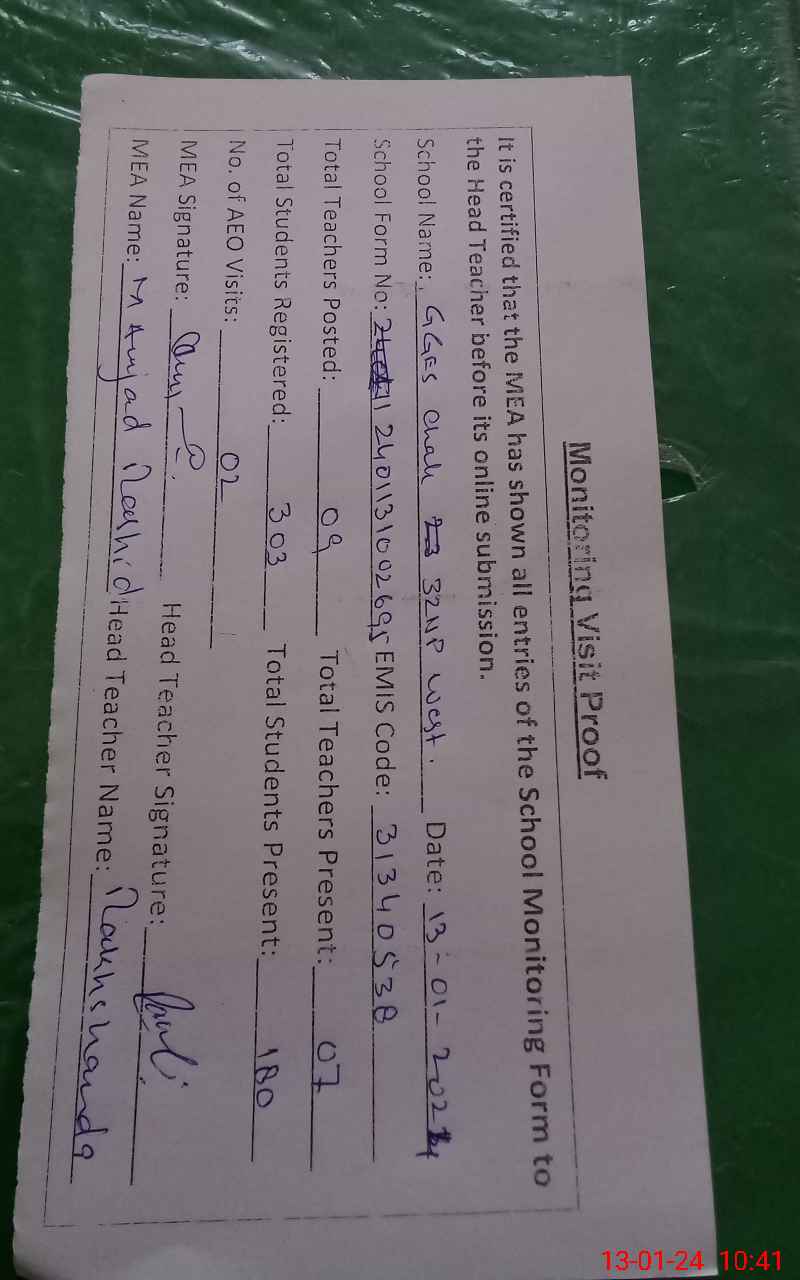 Monitoring Visit Proof
It is certified that the MEA has shown all entries of the School Monitoring Form to
the Head Teacher before its online submission.
School Name: GGES Chak 32NP West. Date: 13-01-2024
School Form No: 2401131002695 EMIS Code: 31340538
Total Teachers Posted: 09 Total Teachers Present: 07
Total Students Registered: 303 Total Students Present: 180
No. of AEO Visits: 02
MEA Signature: Head Teacher Signature:
MEA Name: M Amjad Rashid Head Teacher Name: Rakhshanda
13-01-24 10:41